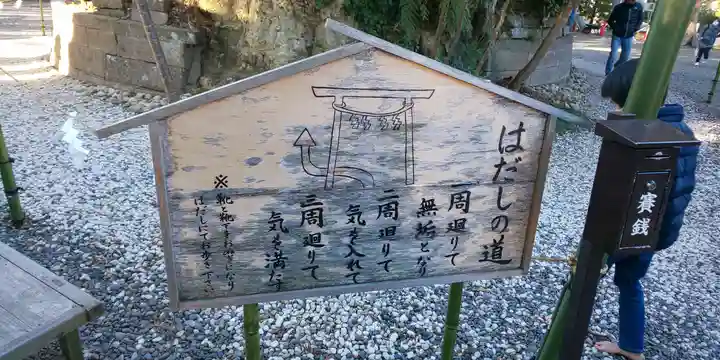 はだしの道
一周廻りて
無垢となり
二周廻りて
気を入れて
三周廻りて
気を満たす
※靴・靴下をお脱ぎになり
はだしにてお歩き下さい。
賽銭